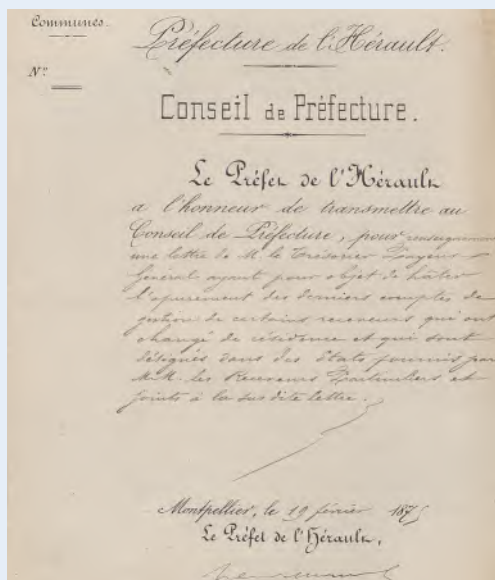 Communes.
Préfecture de l'Hérault.
N°
Conseil de Préfecture.
Le Préfet de l'Hérault
a l'honneur de transmettre au
Conseil de Préfecture, pour renseignements
une lettre de M. le Trésorier Payeur
Général ayant pour objet de hâter
l'apurement des derniers comptes de
gestion de certains receveurs qui ont
changé de résidence et qui sont
désignés dans des États fournis par
M.M. les Receveurs Particuliers et
joints à la susdite lettre.
Montpellier, le 19 février 1875
Le Préfet de l'Hérault,